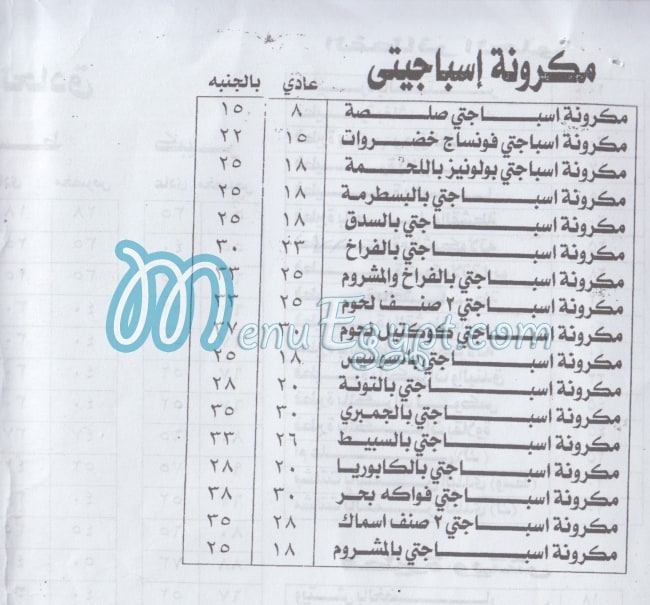 مكرونة إسباجيتى
عادي بالجنبه
مكرونة اسباجتي صلصة ٨ ١٥
مكرونة اسباجتي فونساج خضروات ١٥ ٢٢
مكرونة اسباجتي بولونيز باللحمة ١٨ ٢٥
مكرونة اسباجتي بالبسطرمة ١٨ ٢٥
مكرونة اسباجتي بالسدق ١٨ ٢٥
مكرونة اسباجتي بالفراخ ٢٣ ٣٠
مكرونة اسباجتي بالفراخ والمشروم ٢٥ ٣٣
مكرونة اسباجتي ٢ صنف لحوم ٢٥ ٣٣
مكرونة اسباجتي بكوكتيل لحوم ٣٠ ٣٧
مكرونة اسباجتي بالسوسيس ١٨ ٢٥
مكرونة اسباجتي بالتونة ٢٠ ٢٨
مكرونة اسباجتي بالجمبري ٣٠ ٣٥
مكرونة اسباجتي بالسبيط ٢٦ ٣٣
مكرونة اسباجتي بالكابوريا ٢٠ ٢٨
مكرونة اسباجتي فواكه بحر ٣٠ ٣٨
مكرونة اسباجتي ٢ صنف اسماك ٢٨ ٣٥
مكرونة اسباجتي بالمشروم ١٨ ٢٥
MenuEgypt.com